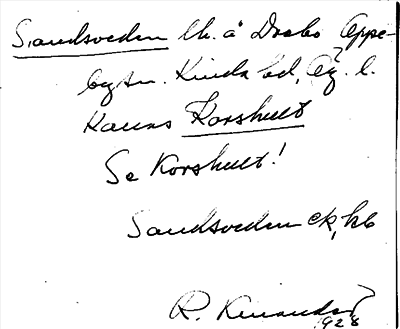 Sandsveden lh. å Drabo Appe-
by sn. Kinda hd, Ög. l.
Kallas Korshult
Se Korshult!
Sandsveden ek, hb
R. Kinander
1928